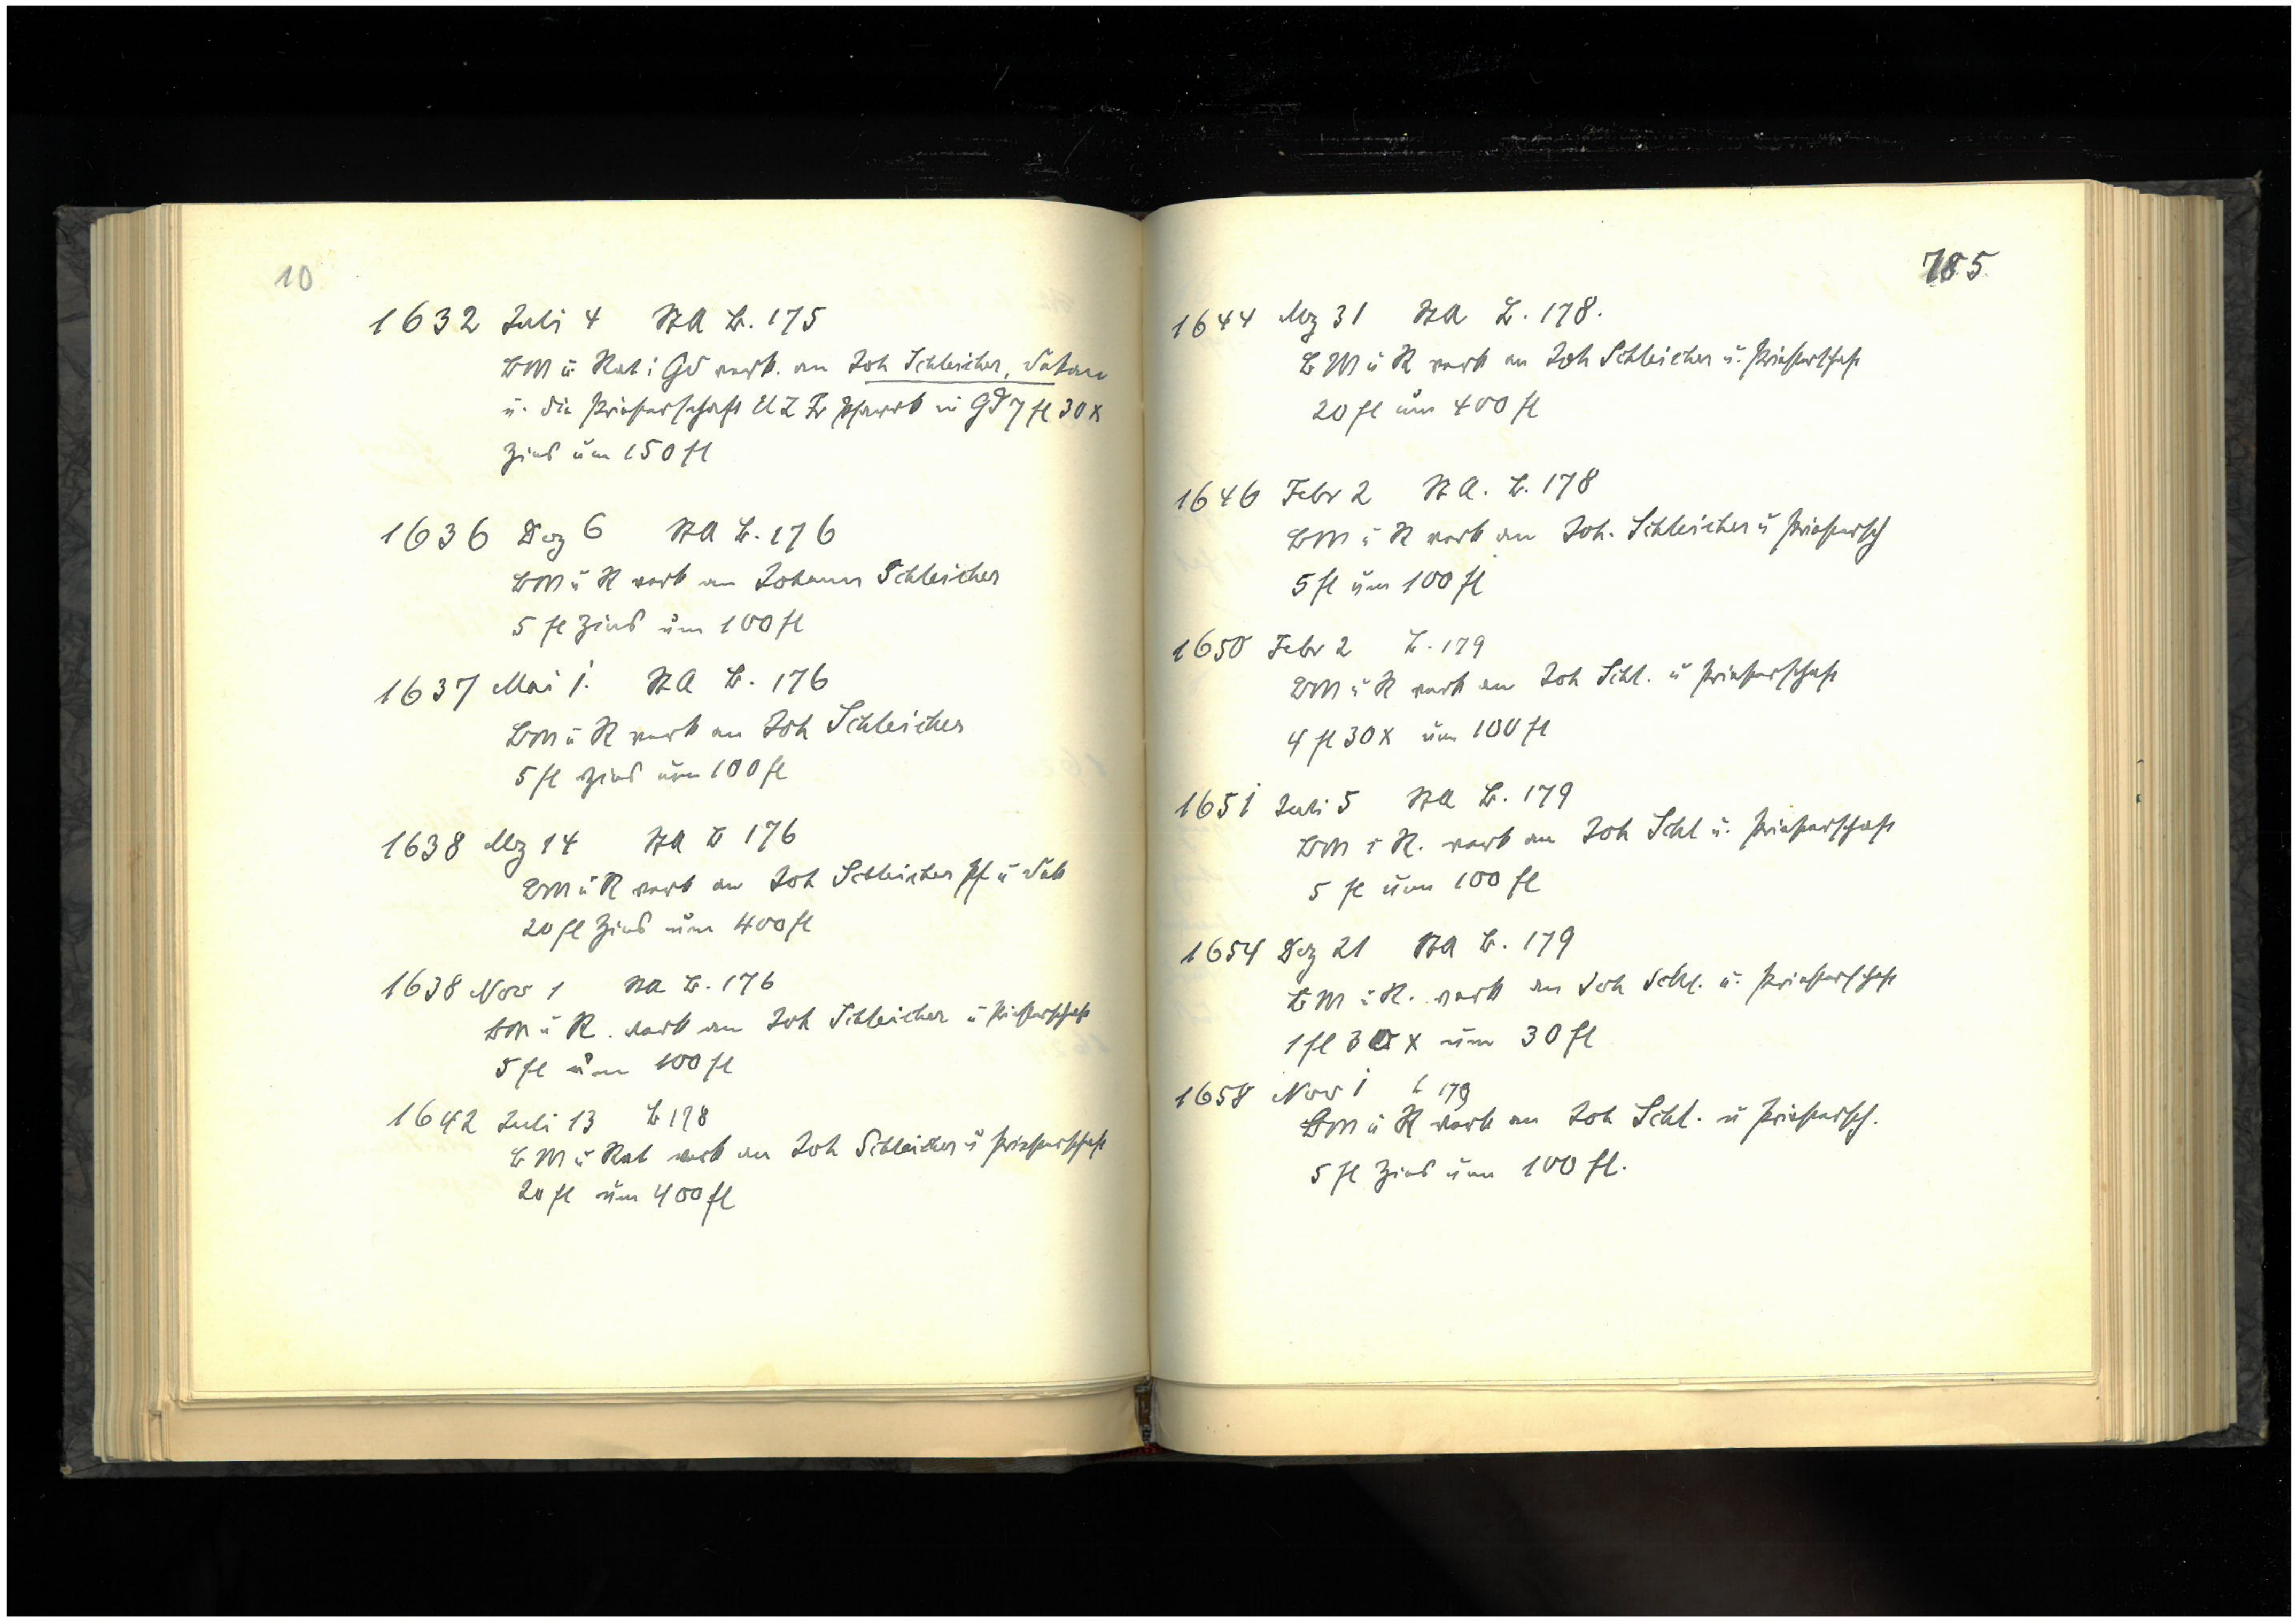 10
1632 Juli 4 StA B. 175
BM u Rat i Gd verk. an Joh Schleicher, Dekan
u. die Priesterschaft U L Fr Pfarrk in Gd 7 fl 30 x
Zins um 150 fl
1636 Dez 6 StA B. 176
BM u R verk an Johann Schleicher
5 fl Zins um 100 fl
1637 Mai 1. StA B. 176
BM u R verk an Joh Schleicher
5 fl Zins um 100 fl
1638 Mz 14 StA B 176
BM u R verk an Joh Schleicher Pf u Dek
20 fl Zins um 400 fl
1638 Nov 1 StA B. 176
BM u R. verk an Joh Schleicher u Priesterschaft
5 fl um 100 fl
1642 Juli 13 B 178
BM u Rat verk an Joh Schleicher u Priesterschaft
20 fl um 400 fl
785
1644 Mz 31 StA B. 178.
BM u R verk an Joh Schleicher u. Priesterschaft
20 fl um 400 fl
1646 Febr 2 StA. B. 178
BM u R verk an Joh. Schleicher u Priestersch
5 fl um 100 fl
1650 Febr 2 B. 179
BM u R verk an Joh Schl. u Priesterschaft
4 fl 30 x um 100 fl
1651 Juli 5 StA B. 179
BM u R. verk an Joh Schl u. Priesterschaft
5 fl um 100 fl
1654 Dez 21 StA B. 179
BM u R. verk an Joh Schl. u. Priesterschaft
1 fl 30 x um 30 fl
1658 Nov 1 B 179
BM u R verk an Joh Schl. u Priestersch.
5 fl Zins um 100 fl.